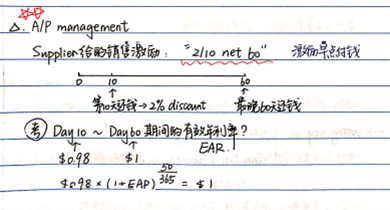 △. A/P management
Supplier给的销售激励: "2/10 net 60" 激励早点付钱
0 10 60
第10天还钱→2% discount 最晚60天还钱
考 Day10 ~ Day60 期间的有效年利率?
EAR
$0.98 $1
$0.98 × (1+EAR)^(50/365) = $1